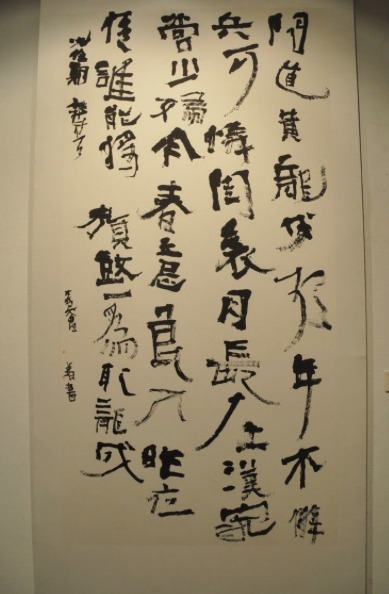 聞道黃龍戍頻年不解
兵可憐閨裏月長在漢家
營少婦今春意良人昨夜
情誰能將旗鼓一為取龍城
沈佺期雜詩